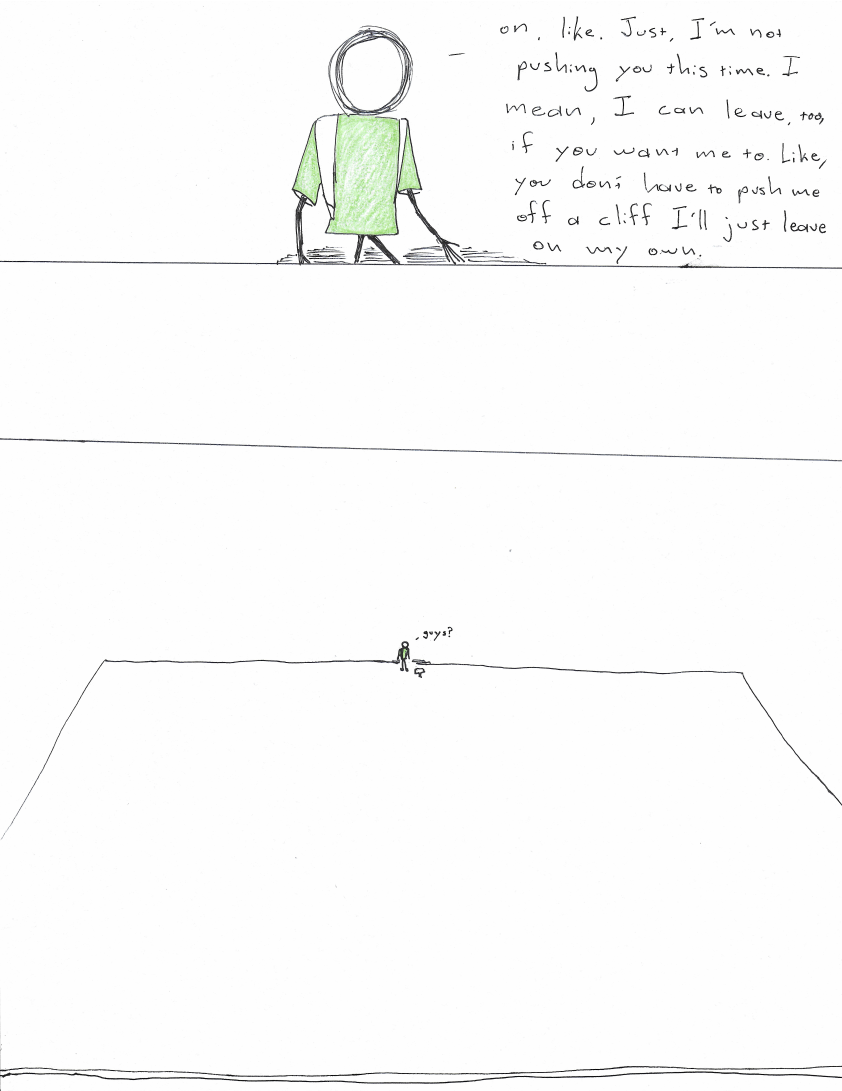 on, like. Just, I'm not
pushing you this time. I
mean, I can leave, too,
if you want me to. Like,
you don't have to push me
off a cliff I'll just leave
on my own.
guys?